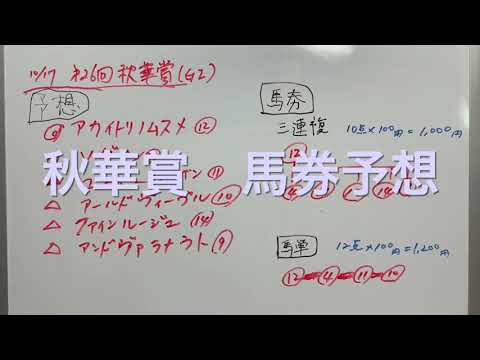 10/17 第26回 秋華賞(G1)
予想
◎ アカイトリノムスメ ⑫
⑪
△ アールドヴィーヴル ⑩
△ ファインルージュ ⑭
△ アンドヴァラナウト ⑨
秋華賞 馬券予想
馬券
三連複 10点×100円=1,000円
⑫
④ ⑭
馬単 12点×100円=1,200円
⑫ー④ー⑪ー⑩